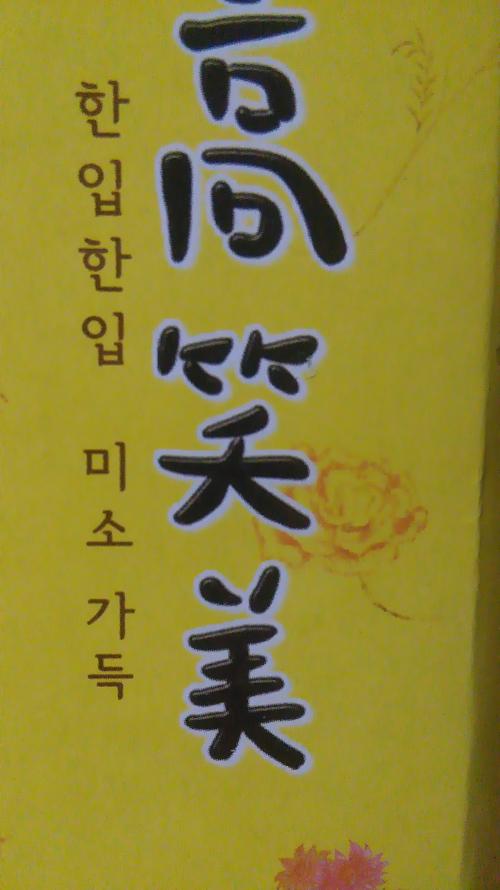 高笑美
한입한입 미소 가득